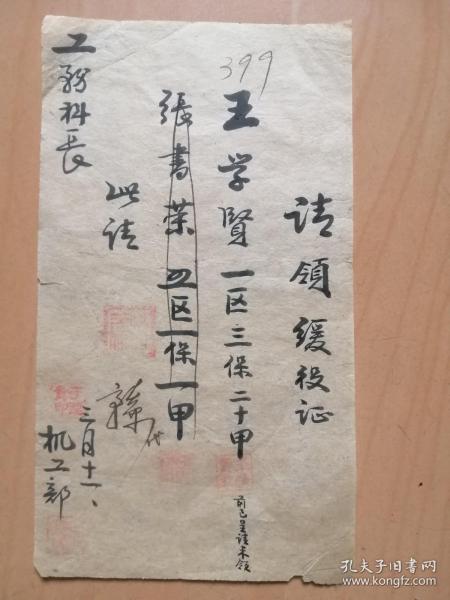 请领缓役证
399
王学賢一区三保二十甲
前已呈请未领
張書荣四区一保一甲
此请
工務科長
三月十一、
机工部
孔夫子旧书网
www.kongfz.com